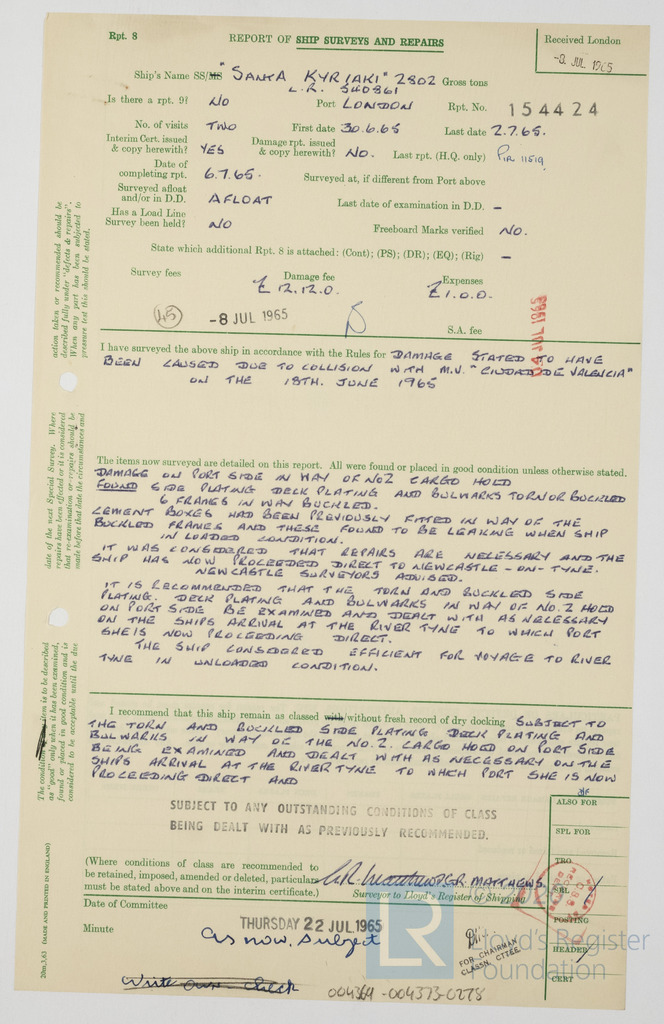 Rpt. 8
REPORT OF SHIP SURVEYS AND REPAIRS
Received London
-8 JUL 1965
Ship's Name SS/MS "SANTA KYRIAKI" 2802 Gross tons
L.R. 540861
Is there a rpt. 9? NO Port LONDON Rpt. No. 154424
No. of visits TWO First date 30.6.65 Last date 2.7.65.
Interim Cert. issued & copy herewith? YES Damage rpt. issued & copy herewith? NO. Last rpt. (H.Q. only) Pir 11519
Date of completing rpt. 6.7.65. Surveyed at, if different from Port above
Surveyed afloat and/or in D.D. AFLOAT Last date of examination in D.D. -
Has a Load Line Survey been held? NO Freeboard Marks verified NO.
State which additional Rpt. 8 is attached: (Cont); (PS); (DR); (EQ); (Rig) -
Survey fees Damage fee £12.12.0. Expenses £1.0.0.
45 -8 JUL 1965 S.A. fee
JUL 1965
I have surveyed the above ship in accordance with the Rules for DAMAGE STATED TO HAVE
BEEN CAUSED DUE TO COLLISION WITH M.V. "CIUDAD DE VALENCIA"
ON THE 18TH. JUNE 1965
The items now surveyed are detailed on this report. All were found or placed in good condition unless otherwise stated.
DAMAGE ON PORT SIDE IN WAY OF NO2 CARGO HOLD
FOUND SIDE PLATING DECK PLATING AND BULWARKS TORN OR BUCKLED
6 FRAMES IN WAY BUCKLED.
CEMENT BOXES HAD BEEN PREVIOUSLY FITTED IN WAY OF THE
BUCKLED FRAMES AND THESE FOUND TO BE LEAKING WHEN SHIP
IN LOADED CONDITION.
IT WAS CONSIDERED THAT REPAIRS ARE NECESSARY AND THE
SHIP HAS NOW PROCEEDED DIRECT TO NEWCASTLE-ON-TYNE.
NEWCASTLE SURVEYORS ADVISED.
IT IS RECOMMENDED THAT THE TORN AND BUCKLED SIDE
PLATING. DECK PLATING AND BULWARKS IN WAY OF NO.2 HOLD
ON PORT SIDE BE EXAMINED AND DEALT WITH AS NECESSARY
ON THE SHIPS ARRIVAL AT THE RIVER TYNE TO WHICH PORT
SHE IS NOW PROCEEDING DIRECT.
THE SHIP CONSIDERED EFFICIENT FOR VOYAGE TO RIVER
TYNE IN UNLOADED CONDITION.
I recommend that this ship remain as classed with/without fresh record of dry docking SUBJECT TO
THE TORN AND BUCKLED SIDE PLATING DECK PLATING AND
BULWARKS IN WAY OF THE NO.2. CARGO HOLD ON PORT SIDE
BEING EXAMINED AND DEALT WITH AS NECESSARY ON THE
SHIPS ARRIVAL AT THE RIVER TYNE TO WHICH PORT SHE IS NOW
PROCEEDING DIRECT AND
SUBJECT TO ANY OUTSTANDING CONDITIONS OF CLASS
BEING DEALT WITH AS PREVIOUSLY RECOMMENDED.
(Where conditions of class are recommended to
be retained, imposed, amended or deleted, particulars
must be stated above and on the interim certificate.)
MATTHEWS
Surveyor to Lloyd's Register of Shipping
Date of Committee THURSDAY 22 JUL 1965
Minute As now, Subject
FOR CHAIRMAN
CLASSN. CTTEE.
Write own check
004364-004373-0278
ALSO FOR
SPL FOR
TRO
SRL
POSTING
HEADER
CERT
LR
Lloyd's Register
Foundation
action taken or recommended should be
described fully under "defects & repairs".
When any part has been subjected to
pressure test this should be stated.
date of the next Special Survey. Where
repairs have been effected or it is considered
that re-examination or repairs should be
made before that date the circumstances and
item is to be described
as "good" only when it has been examined,
found or placed in good condition and is
considered to be acceptable until the due
20m,3,63 (MADE AND PRINTED IN ENGLAND)